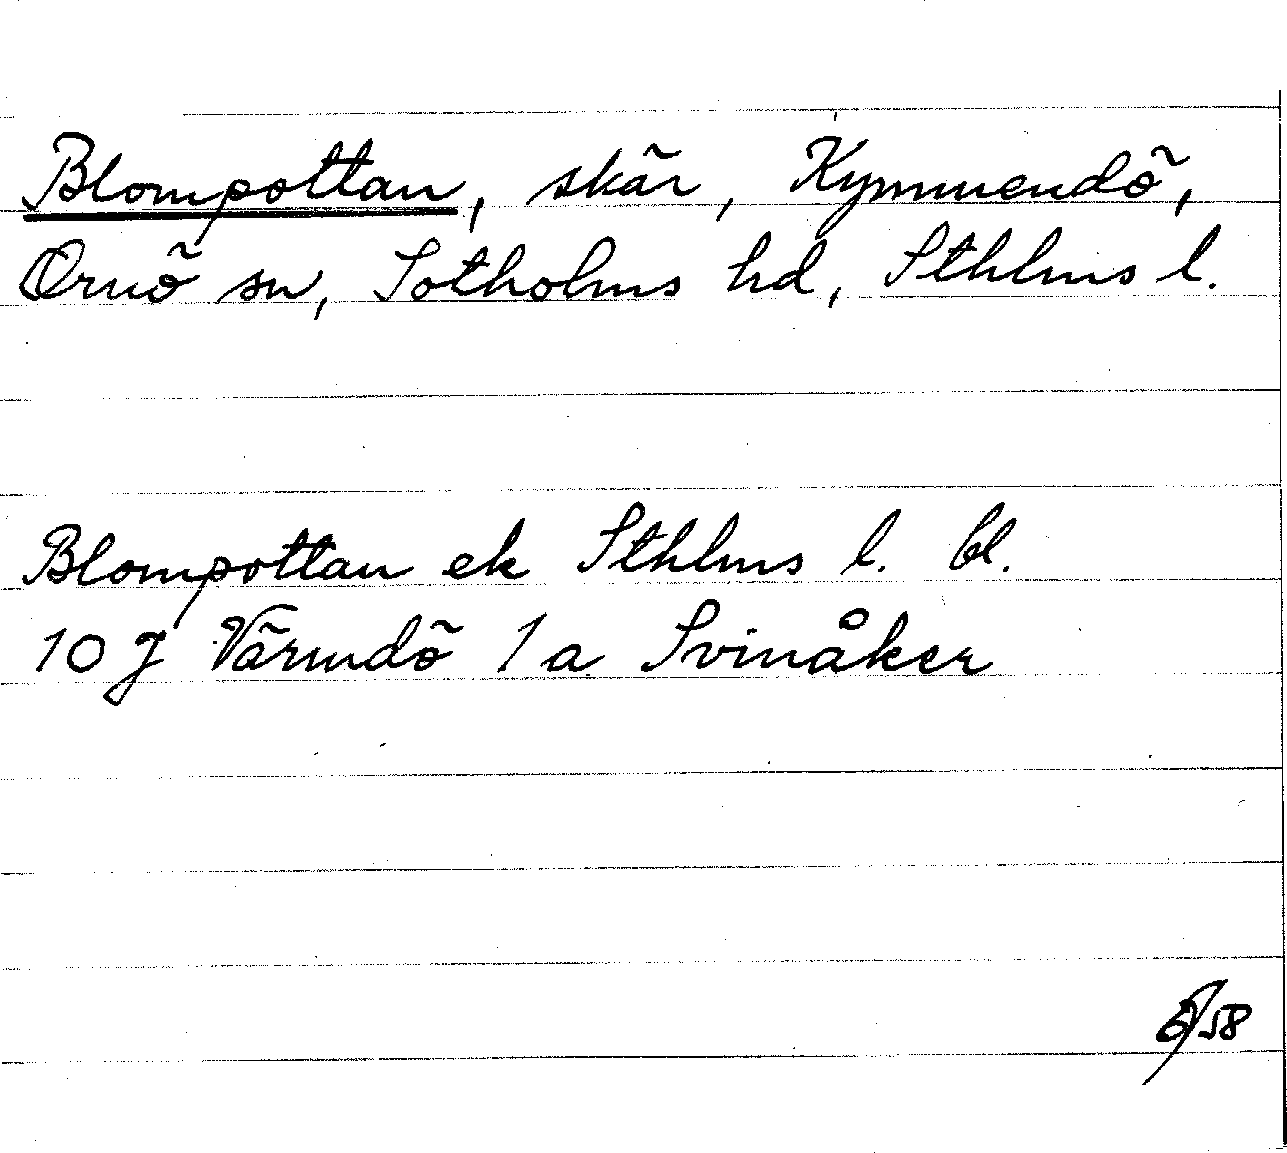 Blompottan, skär, Kymmendö,
Ornö sn, Sotholms hd, Sthlms l.
Blompottan ek Sthlms l. bl.
10 J Värmdö 1 a Svinåker